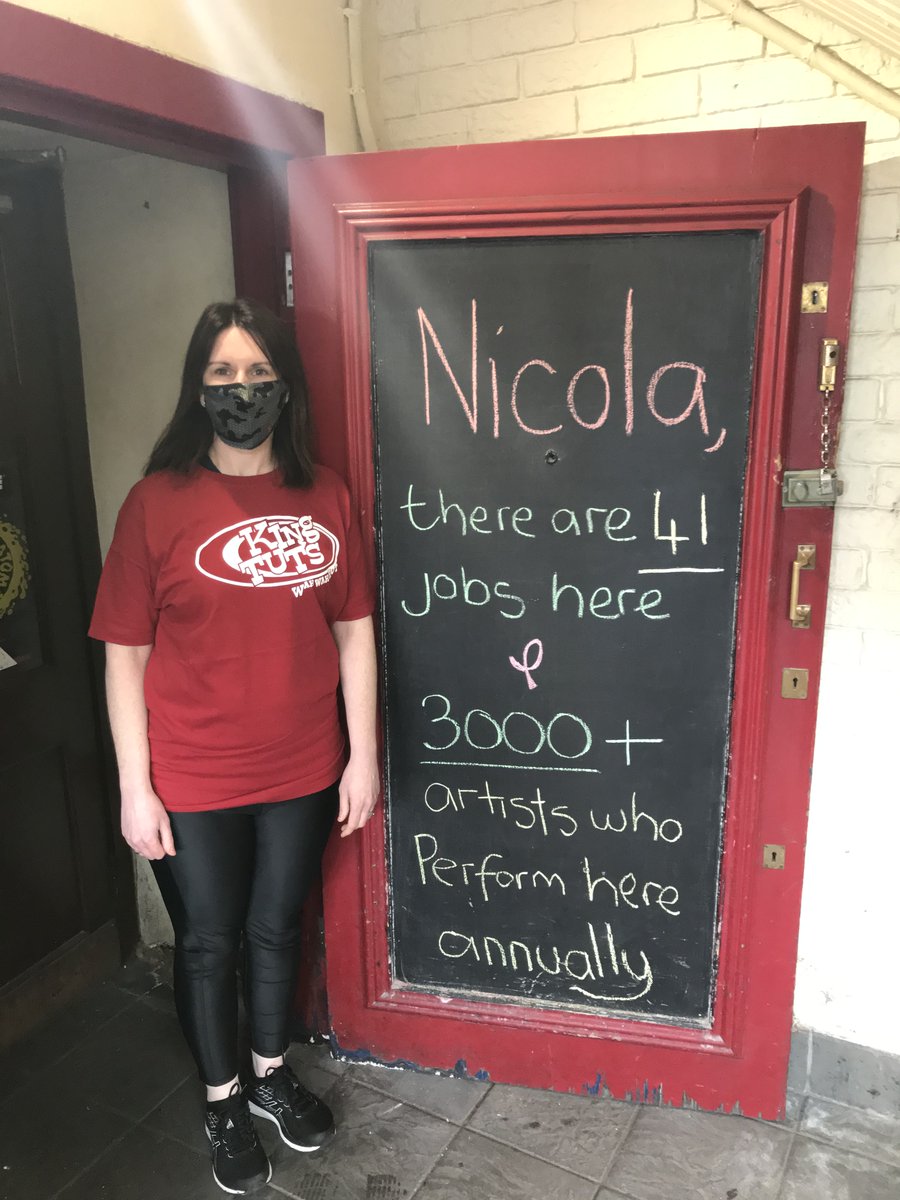 KING
TUTS
WAH WAH HUT
Nicola,
there are 41
jobs here
&
3000+
artists who
Perform here
annually